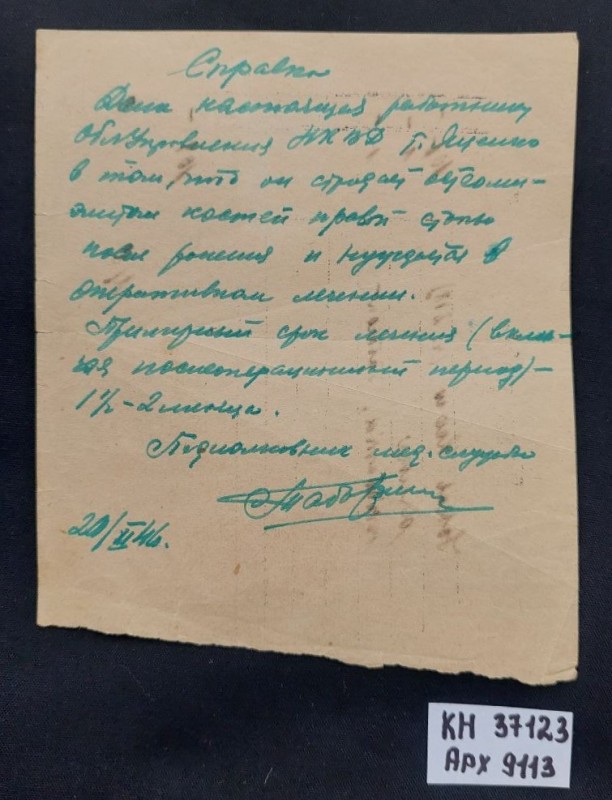 Справка
Дана настоящая работнику
Обл Управления НКВД т. Яценко
в том, что он страдает остеоми-
элитом костей правой стопы
после ранения и нуждается в
оперативном лечении.
Примерный срок лечения (вклю-
чая послеоперационный период) -
1½ - 2 месяца.
Подполковник мед. службы
20/XI 46.
КН 37123
Арх 9113